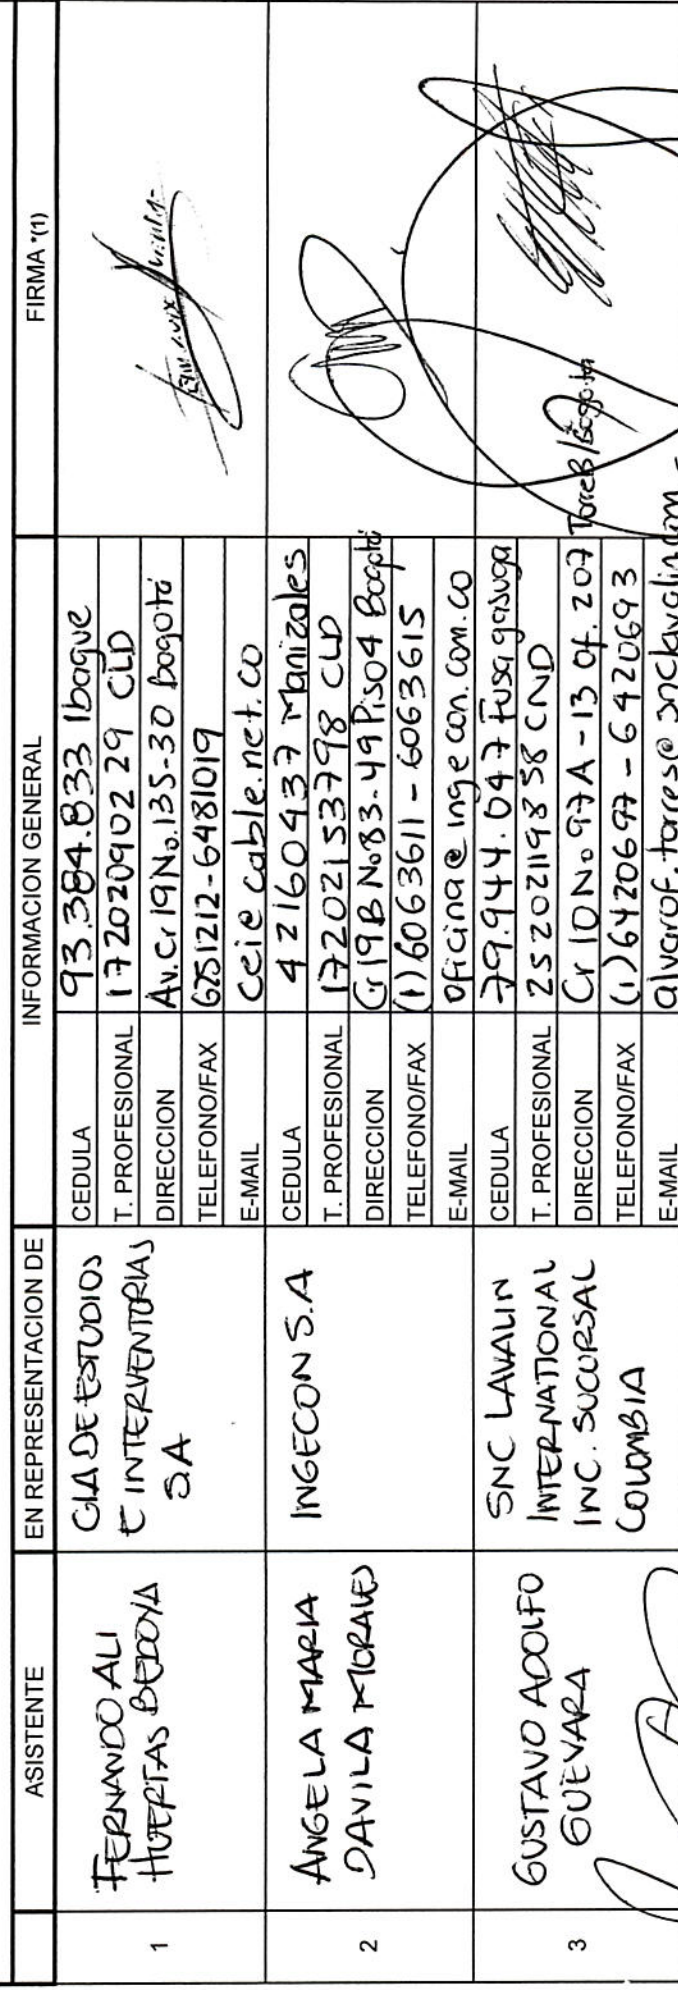 ASISTENTE EN REPRESENTACION DE INFORMACION GENERAL FIRMA *(1)
1
FERNANDO ALI
HUERTAS BEDOYA
CIA DE ESTUDIOS
E INTERVENTORIAS
S.A
CEDULA 93.384.833 Ibague
T. PROFESIONAL 172020902 29 CLD
DIRECCION Av. Cr 19 No. 135-30 Bogotá
TELEFONO/FAX 6251212-6481019
E-MAIL ceie cable.net.co
2
ANGELA MARIA
DAVILA MORALES
INGECON S.A
CEDULA 42160437 Manizales
T. PROFESIONAL 17202153798 CLD
DIRECCION Cr 19B No 83-49 Piso 4 Bogotá
TELEFONO/FAX (1) 6063611 - 6063615
E-MAIL oficina@ingecon.com.co
3
GUSTAVO ADOLFO
GUEVARA
SNC LAVALIN
INTERNATIONAL
INC. SUCURSAL
COLOMBIA
CEDULA 79.944.047 Fusagasuga
T. PROFESIONAL 25202119858 CND
DIRECCION Cr 10 No 97A - 13 Of. 207 Torre B/Bogota
TELEFONO/FAX (1) 6420697 - 6420693
E-MAIL alvarof.torres@snclavalin.com